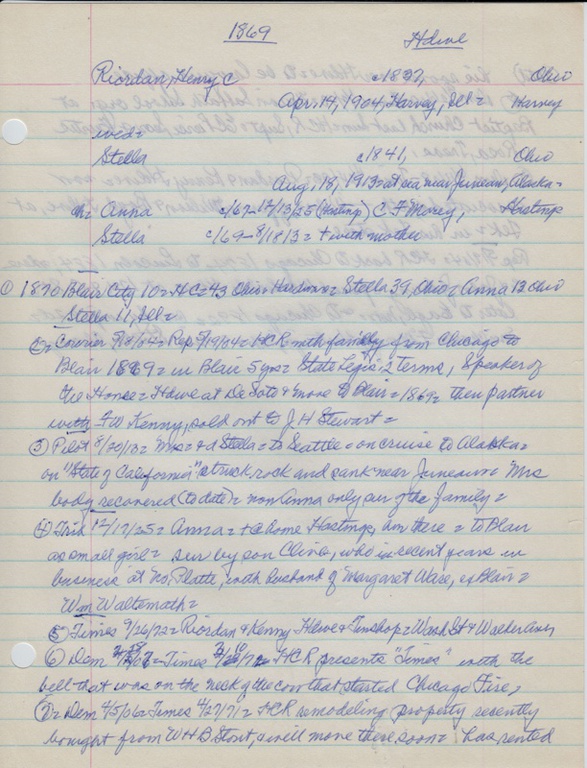 1869
Hdwe
Riordan, Henry C c1827, Ohio
Apr. 14, 1904, Harvey, Ill = Harvey
wed =
Stella c1841, Ohio
Aug. 18, 1913 = at sea near Juneau, Alaska =
ch = Anna c/67 - 12/13/25 (Hastings) C F Morey, Hastings
Stella c/69 - 8/18/13 = + with mother
① 1870 Blair City 10 = HC = 43 Ohio = Hardware = Stella 39, Ohio = Anna 13 Ohio
Stella 11, Ill =
② Courier = Rep 5/19/04 = HCR with family from Chicago to
Blair 1869 = in Blair 5 yrs = State Legis, 2 terms, Speaker of
the House = Hdwe at De Soto & move to Blair = 1869 = then partner
with F W Kenny, sold out to J H Stewart =
③ Pilot 8/20/13 = Mrs = & d Stella = to Seattle = on cruise to Alaska =
on "State of California" struck rock and sank near Juneau = Mrs
body recovered (to date) = now Anna only sur of the family =
④ Trib 12/17/25 = Anna = home Hastings, bur there = to Blair
as small girl = sur by son Cline, who in recent years in
business at No, Platte, with husband of Margaret Ware, ex Blair =
Wm Waltemath =
⑤ Times 9/26/72 = Riordan & Kenny Hdwe & Tinshop = Wash St & Walker Ave,
⑥ Dem = Times = HCR presents "Times" with the
bell that was on the neck of the cow that started Chicago Fire,
⑦ = Dem 4/5/06 = Times 4/27/71 = HCR remodeling property recently
bought from W H B Stout, will move there soon = has rented